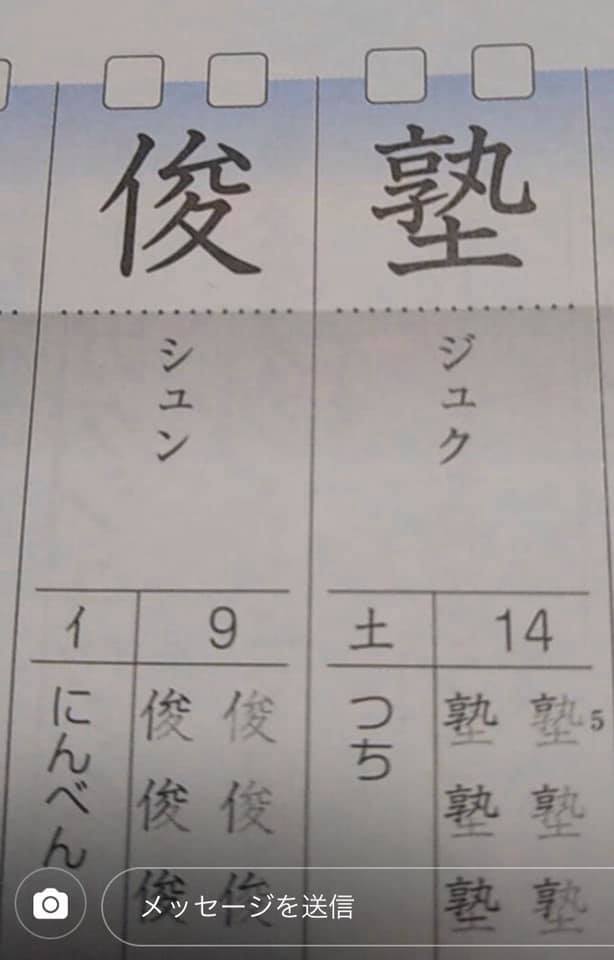 塾
ジュク
土 14
つち
塾 塾 5
塾 塾
塾 塾
俊
シュン
亻 9
にんべん
俊 俊
俊 俊
俊 俊
メッセージを送信